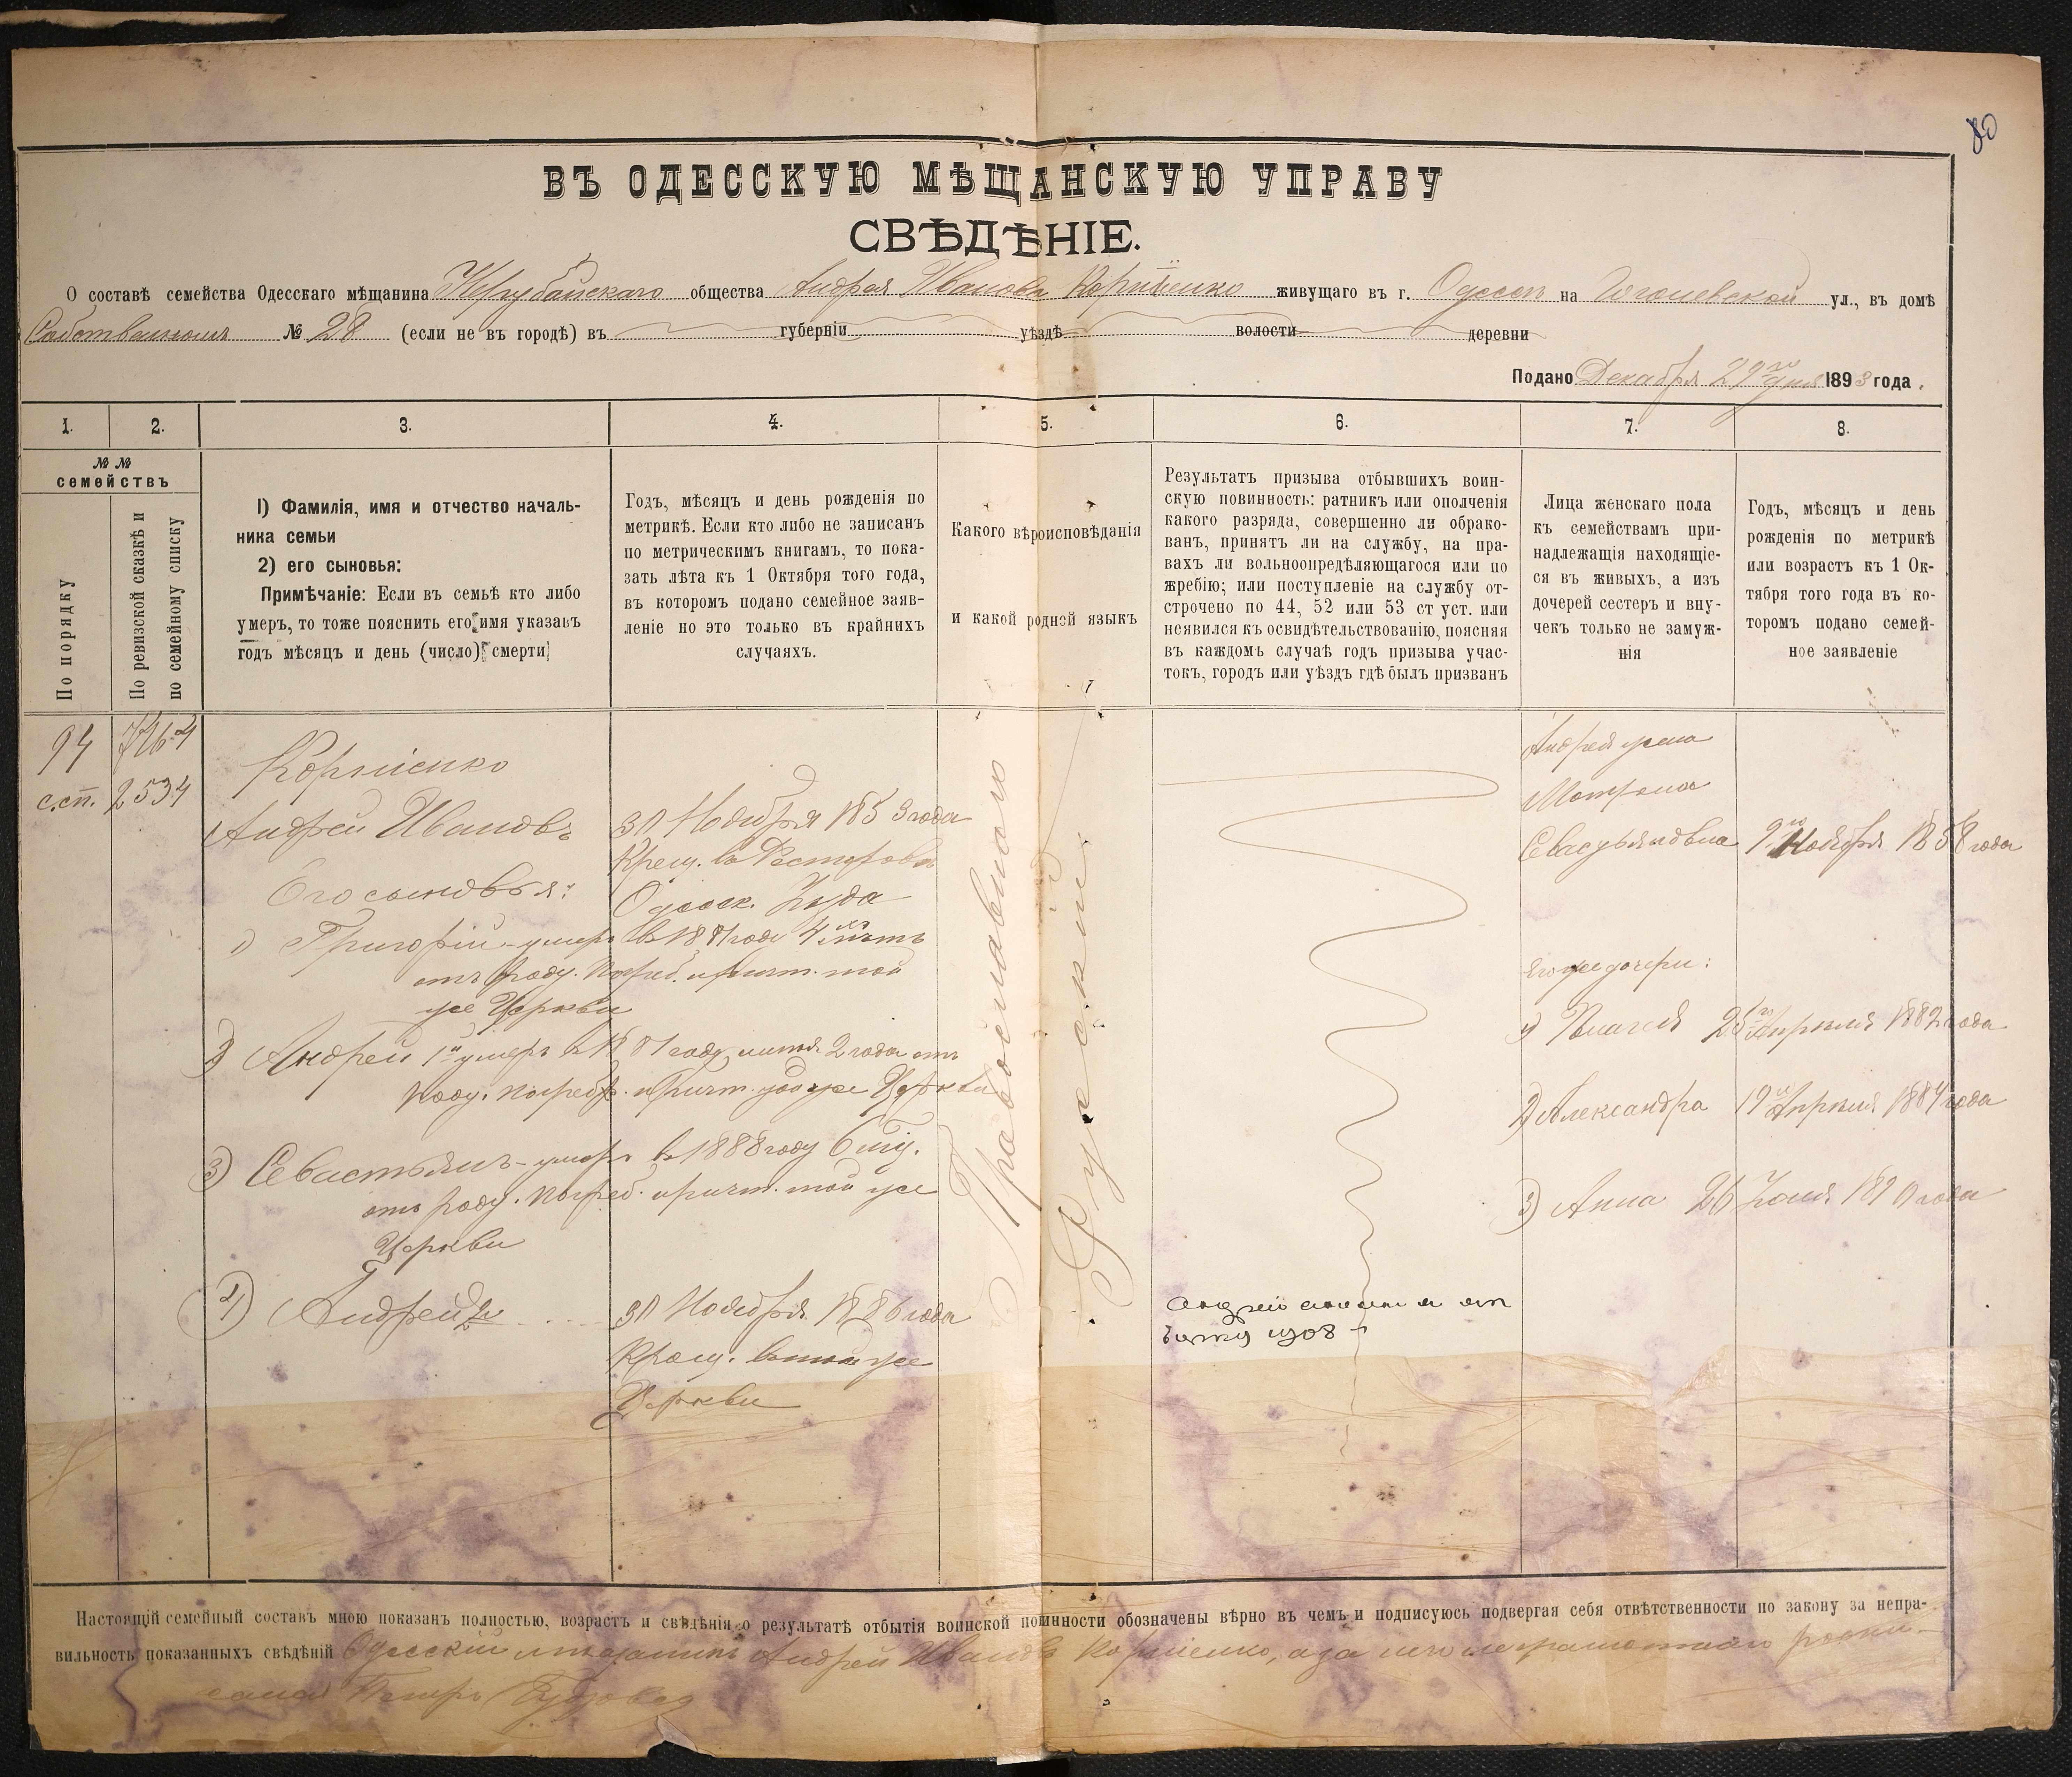 80
ВЪ ОДЕССКУЮ МѢЩАНСКУЮ УПРАВУ
СВѢДѢНІЕ.
О составѣ семейства Одесскаго мѣщанина Нерубайскаго общества Андрея Иванова Корніенко живущаго въ г. Одессѣ на ул., въ домѣ
Собственномъ № 28 (если не въ городѣ) въ губерніи уѣздѣ волости деревни
Подано Декабря 29го дня 1893 года.
1. 2. 3. 4. 5. 6. 7. 8.
№ №
семействъ
По порядку
По ревизской сказкѣ и
по семейному списку
1) Фамилія, имя и отчество началь-
ника семьи
2) его сыновья:
Примѣчаніе: Если въ семьѣ кто либо
умеръ, то тоже пояснить его имя указавъ
годъ мѣсяцъ и день (число) смерти
Годъ, мѣсяцъ и день рожденія по
метрикѣ. Если кто либо не записанъ
по метрическимъ книгамъ, то пока-
зать лѣта къ 1 Октября того года,
въ которомъ подано семейное заяв-
леніе но это только въ крайнихъ
случаяхъ.
Какого вѣроисповѣданія
и какой родной языкъ
Результатъ призыва отбывшихъ воин-
скую повинность: ратникъ или ополченія
какого разряда, совершенно ли обрако-
ванъ, принятъ ли на службу, на пра-
вахъ ли вольноопредѣляющагося или по
жребію; или поступленіе на службу от-
строчено по 44, 52 или 53 ст уст. или
неявился къ освидѣтельствованію, поясняя
въ каждомъ случаѣ годъ призыва учас-
токъ, городъ или уѣздъ гдѣ былъ призванъ
Лица женскаго пола
къ семействамъ при-
надлежащія находящіе-
ся въ живыхъ, а изъ
дочерей сестеръ и вну-
чекъ только не замуж-
нія
Годъ, мѣсяцъ и день
рожденія по метрикѣ
или возрастъ къ 1 Ок-
тября того года въ ко-
торомъ подано семей-
ное заявленіе
94
с.сп. 2534
Корніенко
Андрей Ивановъ
Его сыновья:
1) Григорій - умеръ въ 1881 году 4хъ лѣтъ
отъ роду. Погреб. причт. той
же Церкви
2) Андрей 1й умеръ въ 1881 году 2 года отъ
роду. погреб. причт. той же Церкви
3) Севастьянъ - умеръ въ 1888 году 6
отъ роду. Погреб. причт. той же
Церкви
4) Андрей 2й
30 Ноября 1853 года
Крещ. въ
Одесск. Уѣзда
30 Ноября 1886 года
Крещ. въ той же
Церкви
Православнаго
Русскій
Андрей 1908
Андрея жена
Матрона
Севастьяновна 9го Ноября 1858 года
Его же дочери:
1) Пелагея 25го Апрѣля 1882 года
2) Александра 19го Апрѣля 1884 года
3) Анна 26 1890 года
Настоящій семейный составъ мною показанъ полностью, возрастъ и свѣдѣнія о результатѣ отбытія воинской повинности обозначены вѣрно въ чемъ и подписуюсь подвергая себя отвѣтственности по закону за непра-
вильность показанныхъ свѣдѣній Одесскій мѣщанинъ Андрей Ивановъ Корніенко, а за него неграмотнаго роспи-
сался Петръ